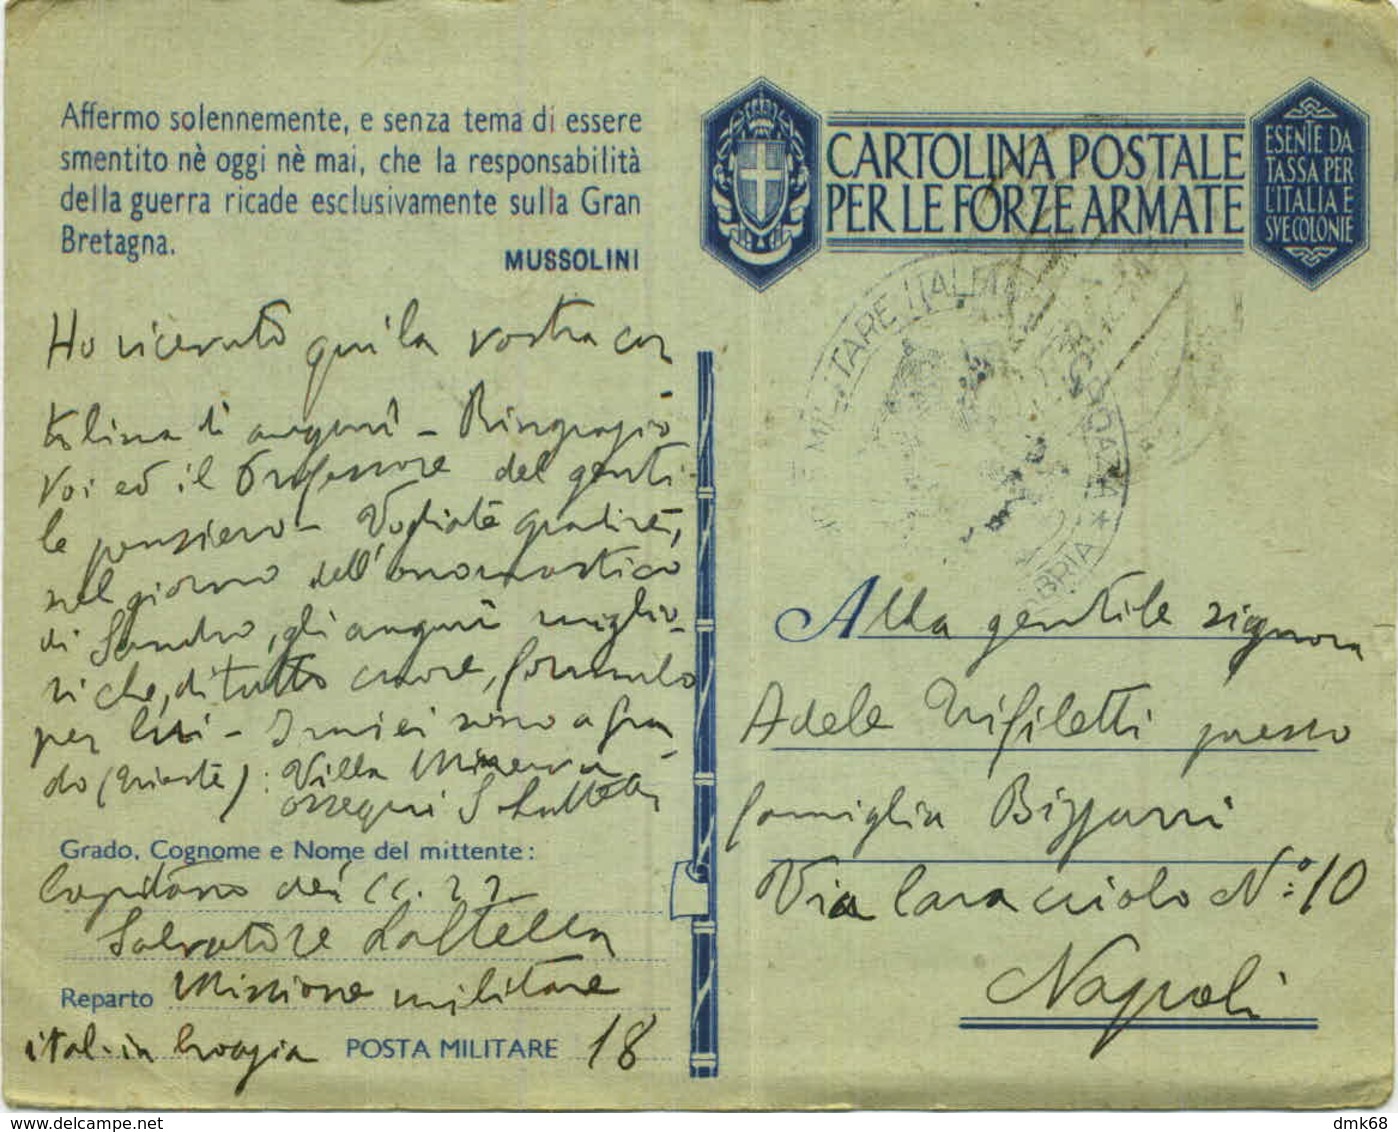 Affermo solennemente, e senza tema di essere
smentito nè oggi nè mai, che la responsabilità
della guerra ricade esclusivamente sulla Gran
Bretagna.
MUSSOLINI
Ho ricevuto qui la vostra car
tolina di auguri - Ringrazio
Voi ed il Professore del genti-
le pensiero - Vogliate gradire,
nel giorno dell'onomastico
di Sandro, gli auguri miglio-
ri che, di tutto cuore, formulo
per lui - I miei sono a Gra
do (Trieste): Villa Minerva -
ossequi S Lattella
Grado, Cognome e Nome del mittente:
Capitano dei CC. RR
Salvatore Lattella
Reparto Missione militare
ital. in Croazia POSTA MILITARE 18
CARTOLINA POSTALE
PER LE FORZE ARMATE
ESENTE DA
TASSA PER
L'ITALIA E
SVE COLONIE
MILITARE ITALIANA CROAZIA
Alla gentile signora
Adele Trifiletti presso
famiglia Bizzarri
Via Caracciolo N.° 10
Napoli
dmk68